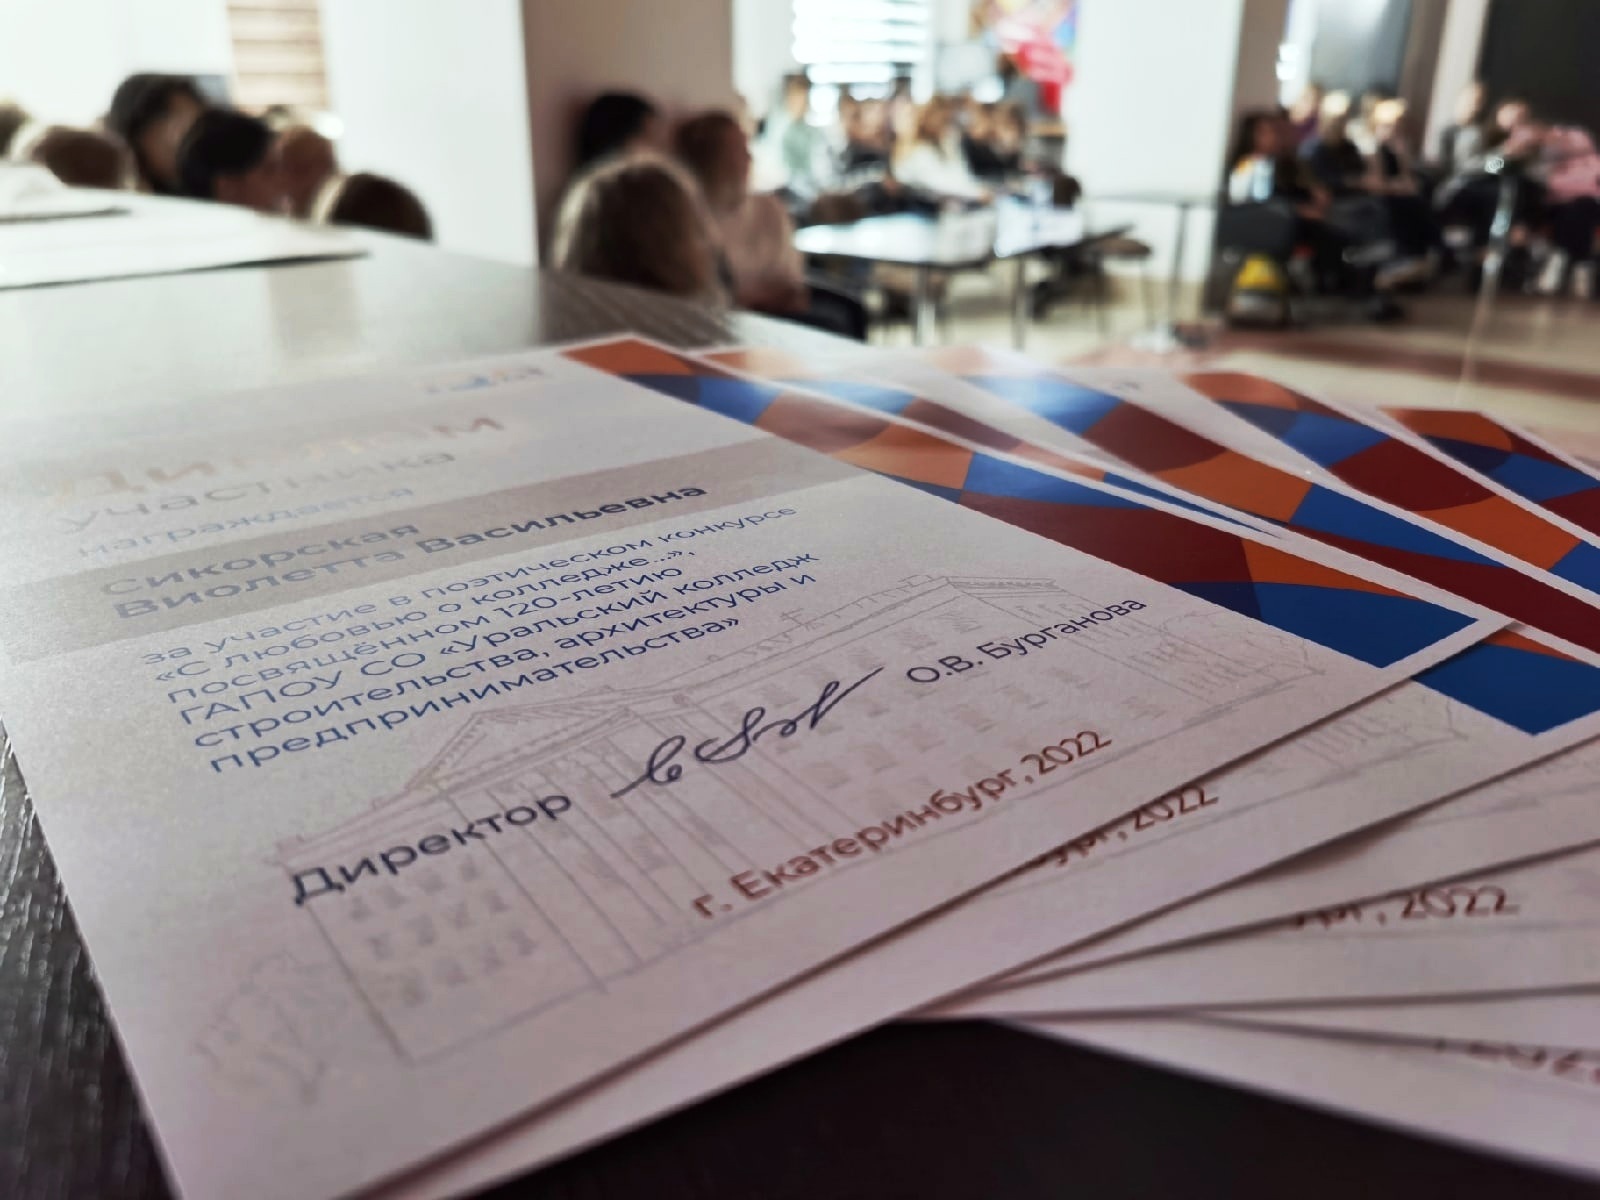 Диплом
участника
награждается
Сикорская
Виолетта Васильевна
за участие в поэтическом конкурсе
«С любовью о колледже...»,
посвящённом 120-летию
ГАПОУ СО «Уральский колледж
строительства, архитектуры и
предпринимательства»
Директор О.В. Бурганова
г. Екатеринбург, 2022
, 2022
, 2022